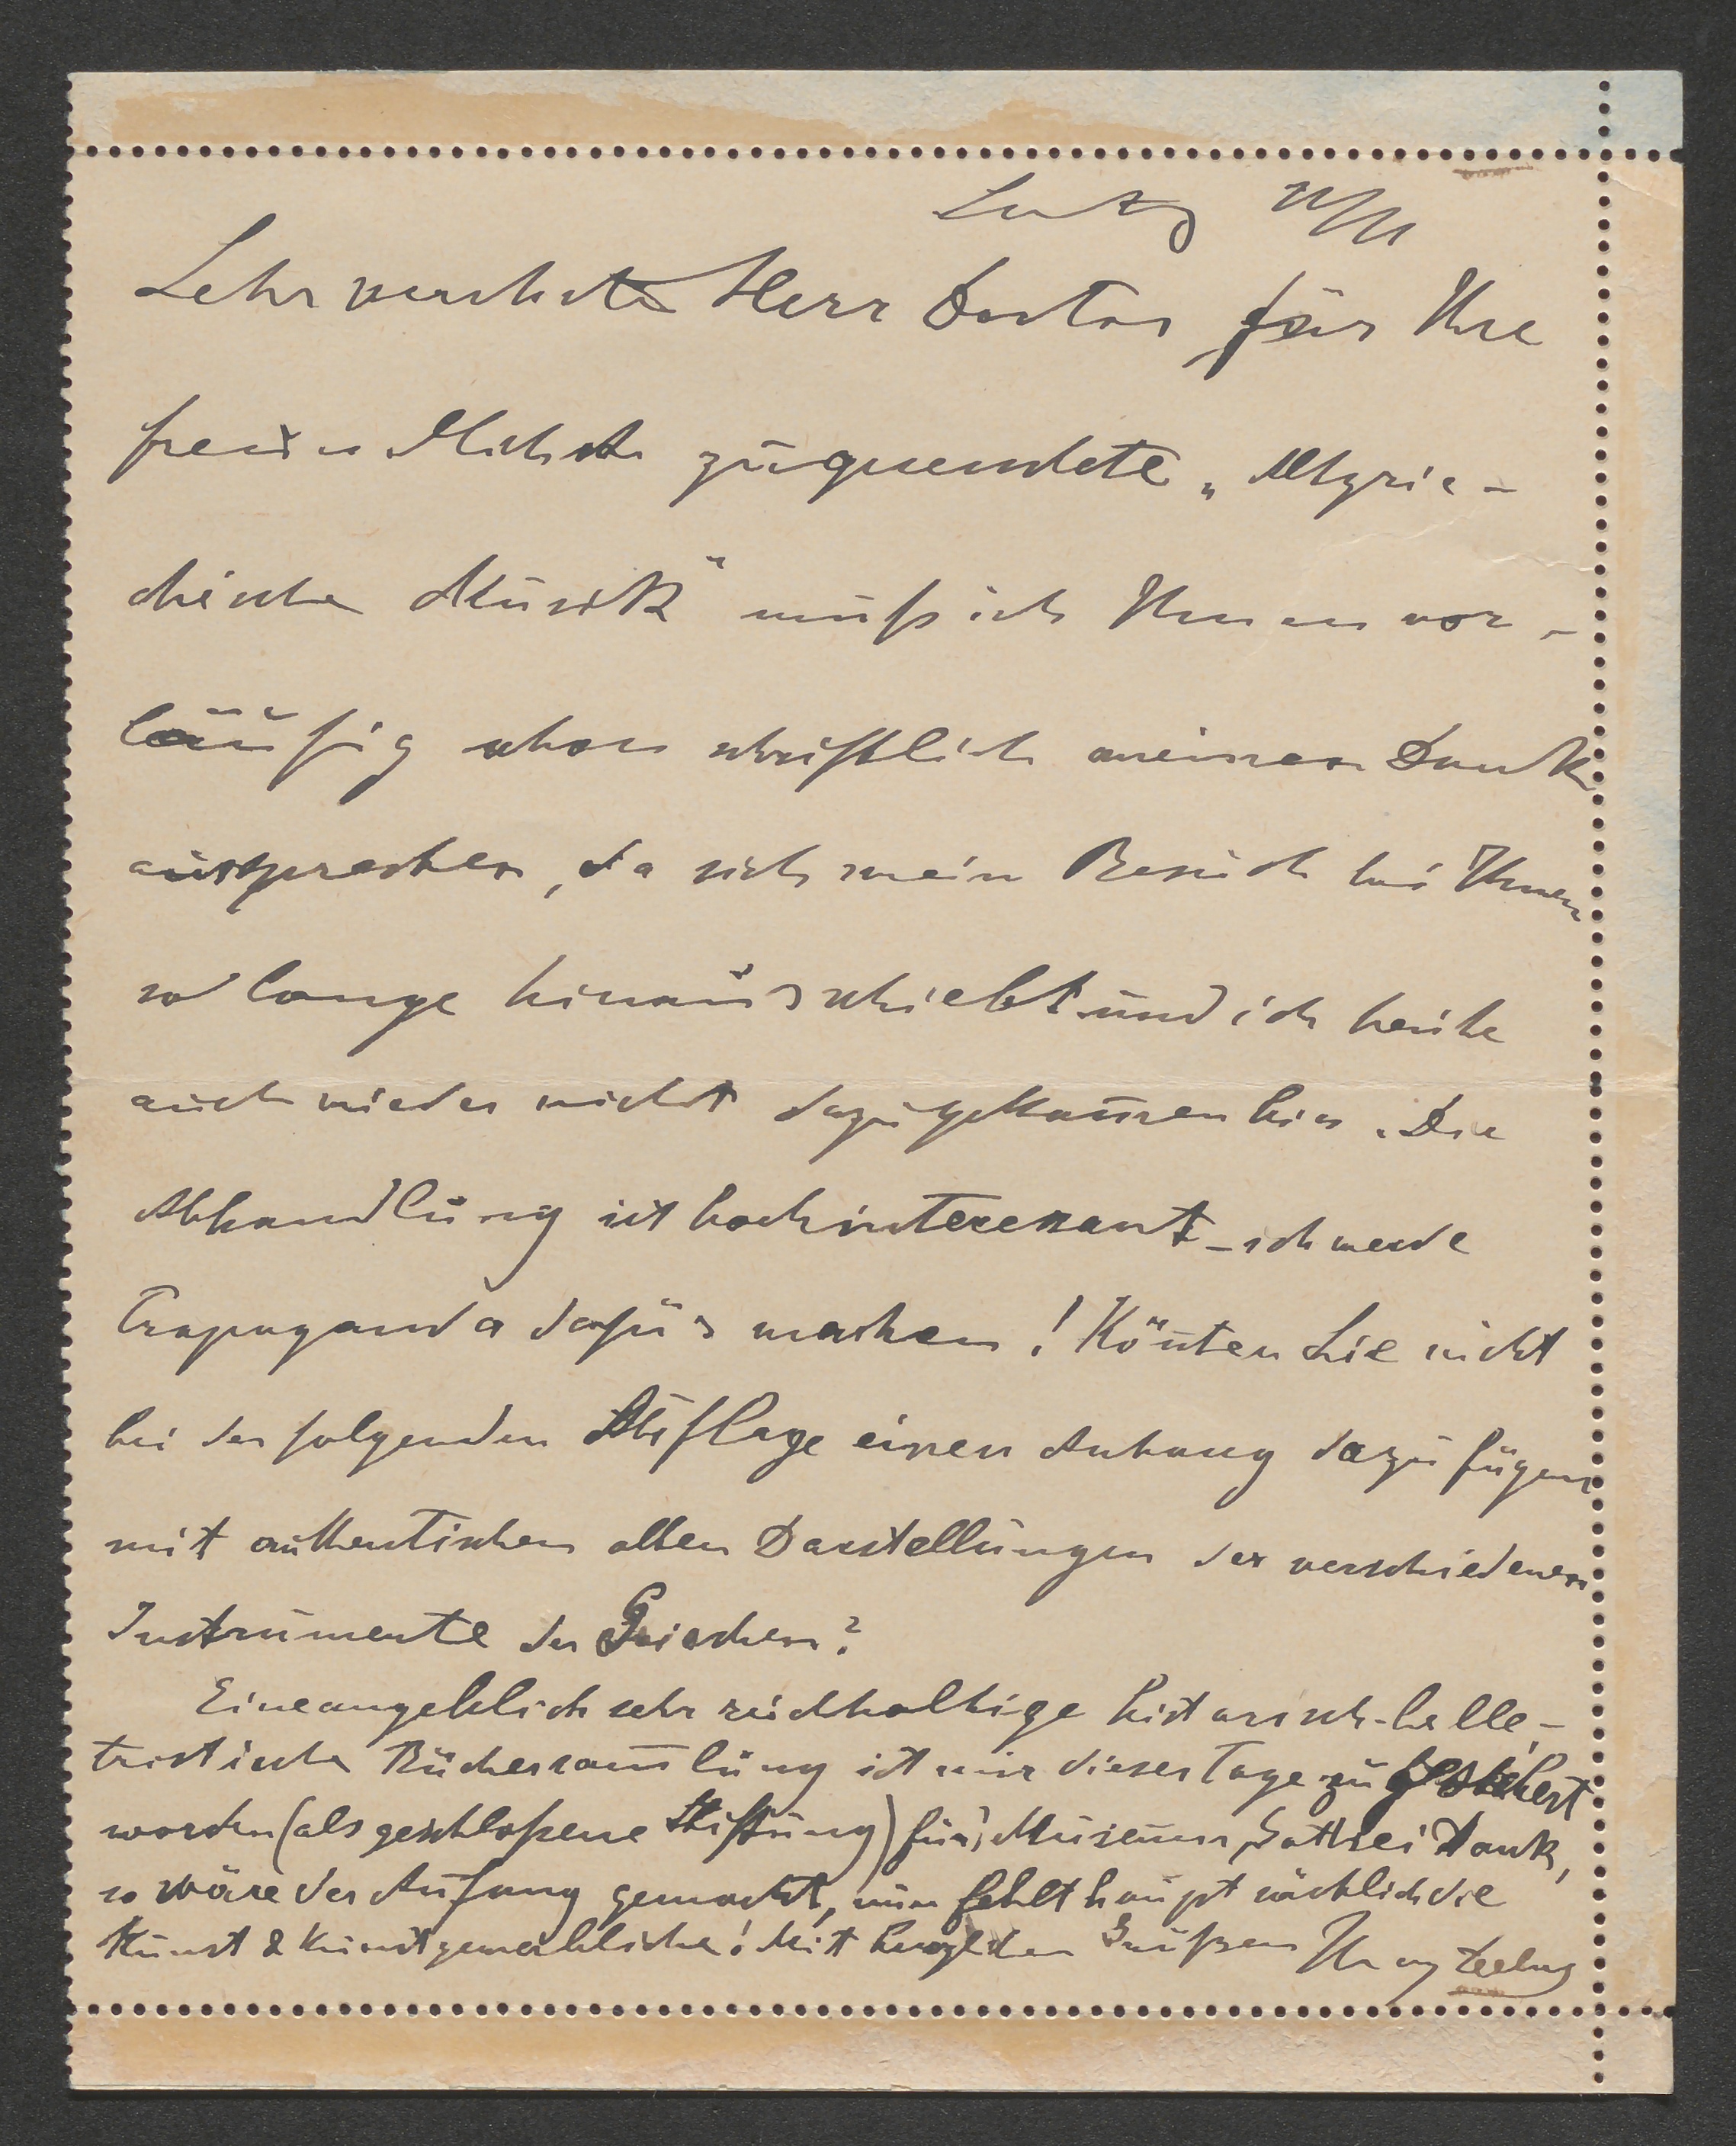 Sehr verehrter Herr Doctor, für Ihre
freundlichst zugesendete „Altgrie-
chische Musik" muß ich Ihnen vor-
läufig schon schriftlich meinen Dank
aussprechen, da sich mein Besuch bei Ihnen
so lange hinausschiebt und ich heute
auch wieder nicht dazugekom̅en bin. Die
Abhandlung ist hochinteressant – ich werde
Propaganda dafür machen! Kön̅ten Sie nicht
bei der folgenden Auflage einen Anhang dazufügen
mit authentischen alten Darstellungen der verschiedenen
Instrumente der Griechen?
Eine angeblich sehr reichhaltige historisch-belle-
tristische Büchersam̅lung ist mir dieser Tage zugesichert
worden (als geschloßene Stiftung) für's Museum, Gott sei Dank,
so wäre der Anfang gemacht, nun fehlt hauptsächlich die
Kunst & kunstgewerbliche! Mit herzlichen Grüßen Ihr